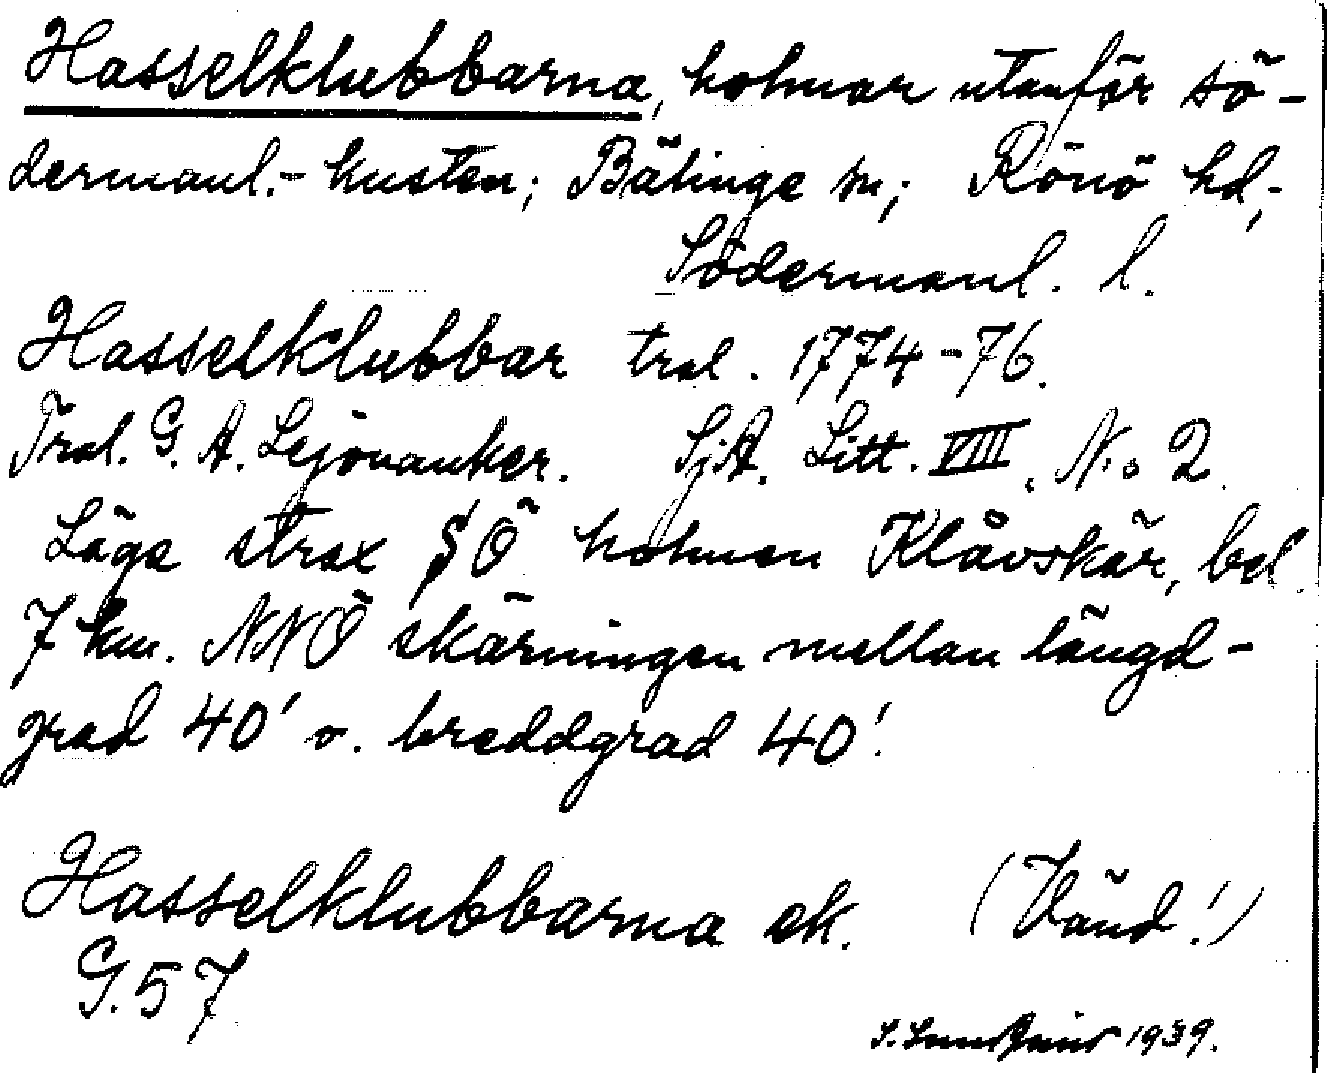 Hasselklubbarna, holmar utanför sö-
dermanl.- kusten; Bälinge sn; Rönö hd,-
Södermanl. l.
Hasselklubbar tral. 1774-76.
Tral. G. A. Lejonanker. SjA. Litt. VIII, No 2.
Läge strax SÖ holmen Klåvskär, bel.
7 km. NNÖ skärningen mellan längd-
grad 40' o. breddgrad 40'.
Hasselklubbarna ek. (Vänd!)
G. 57
1939.